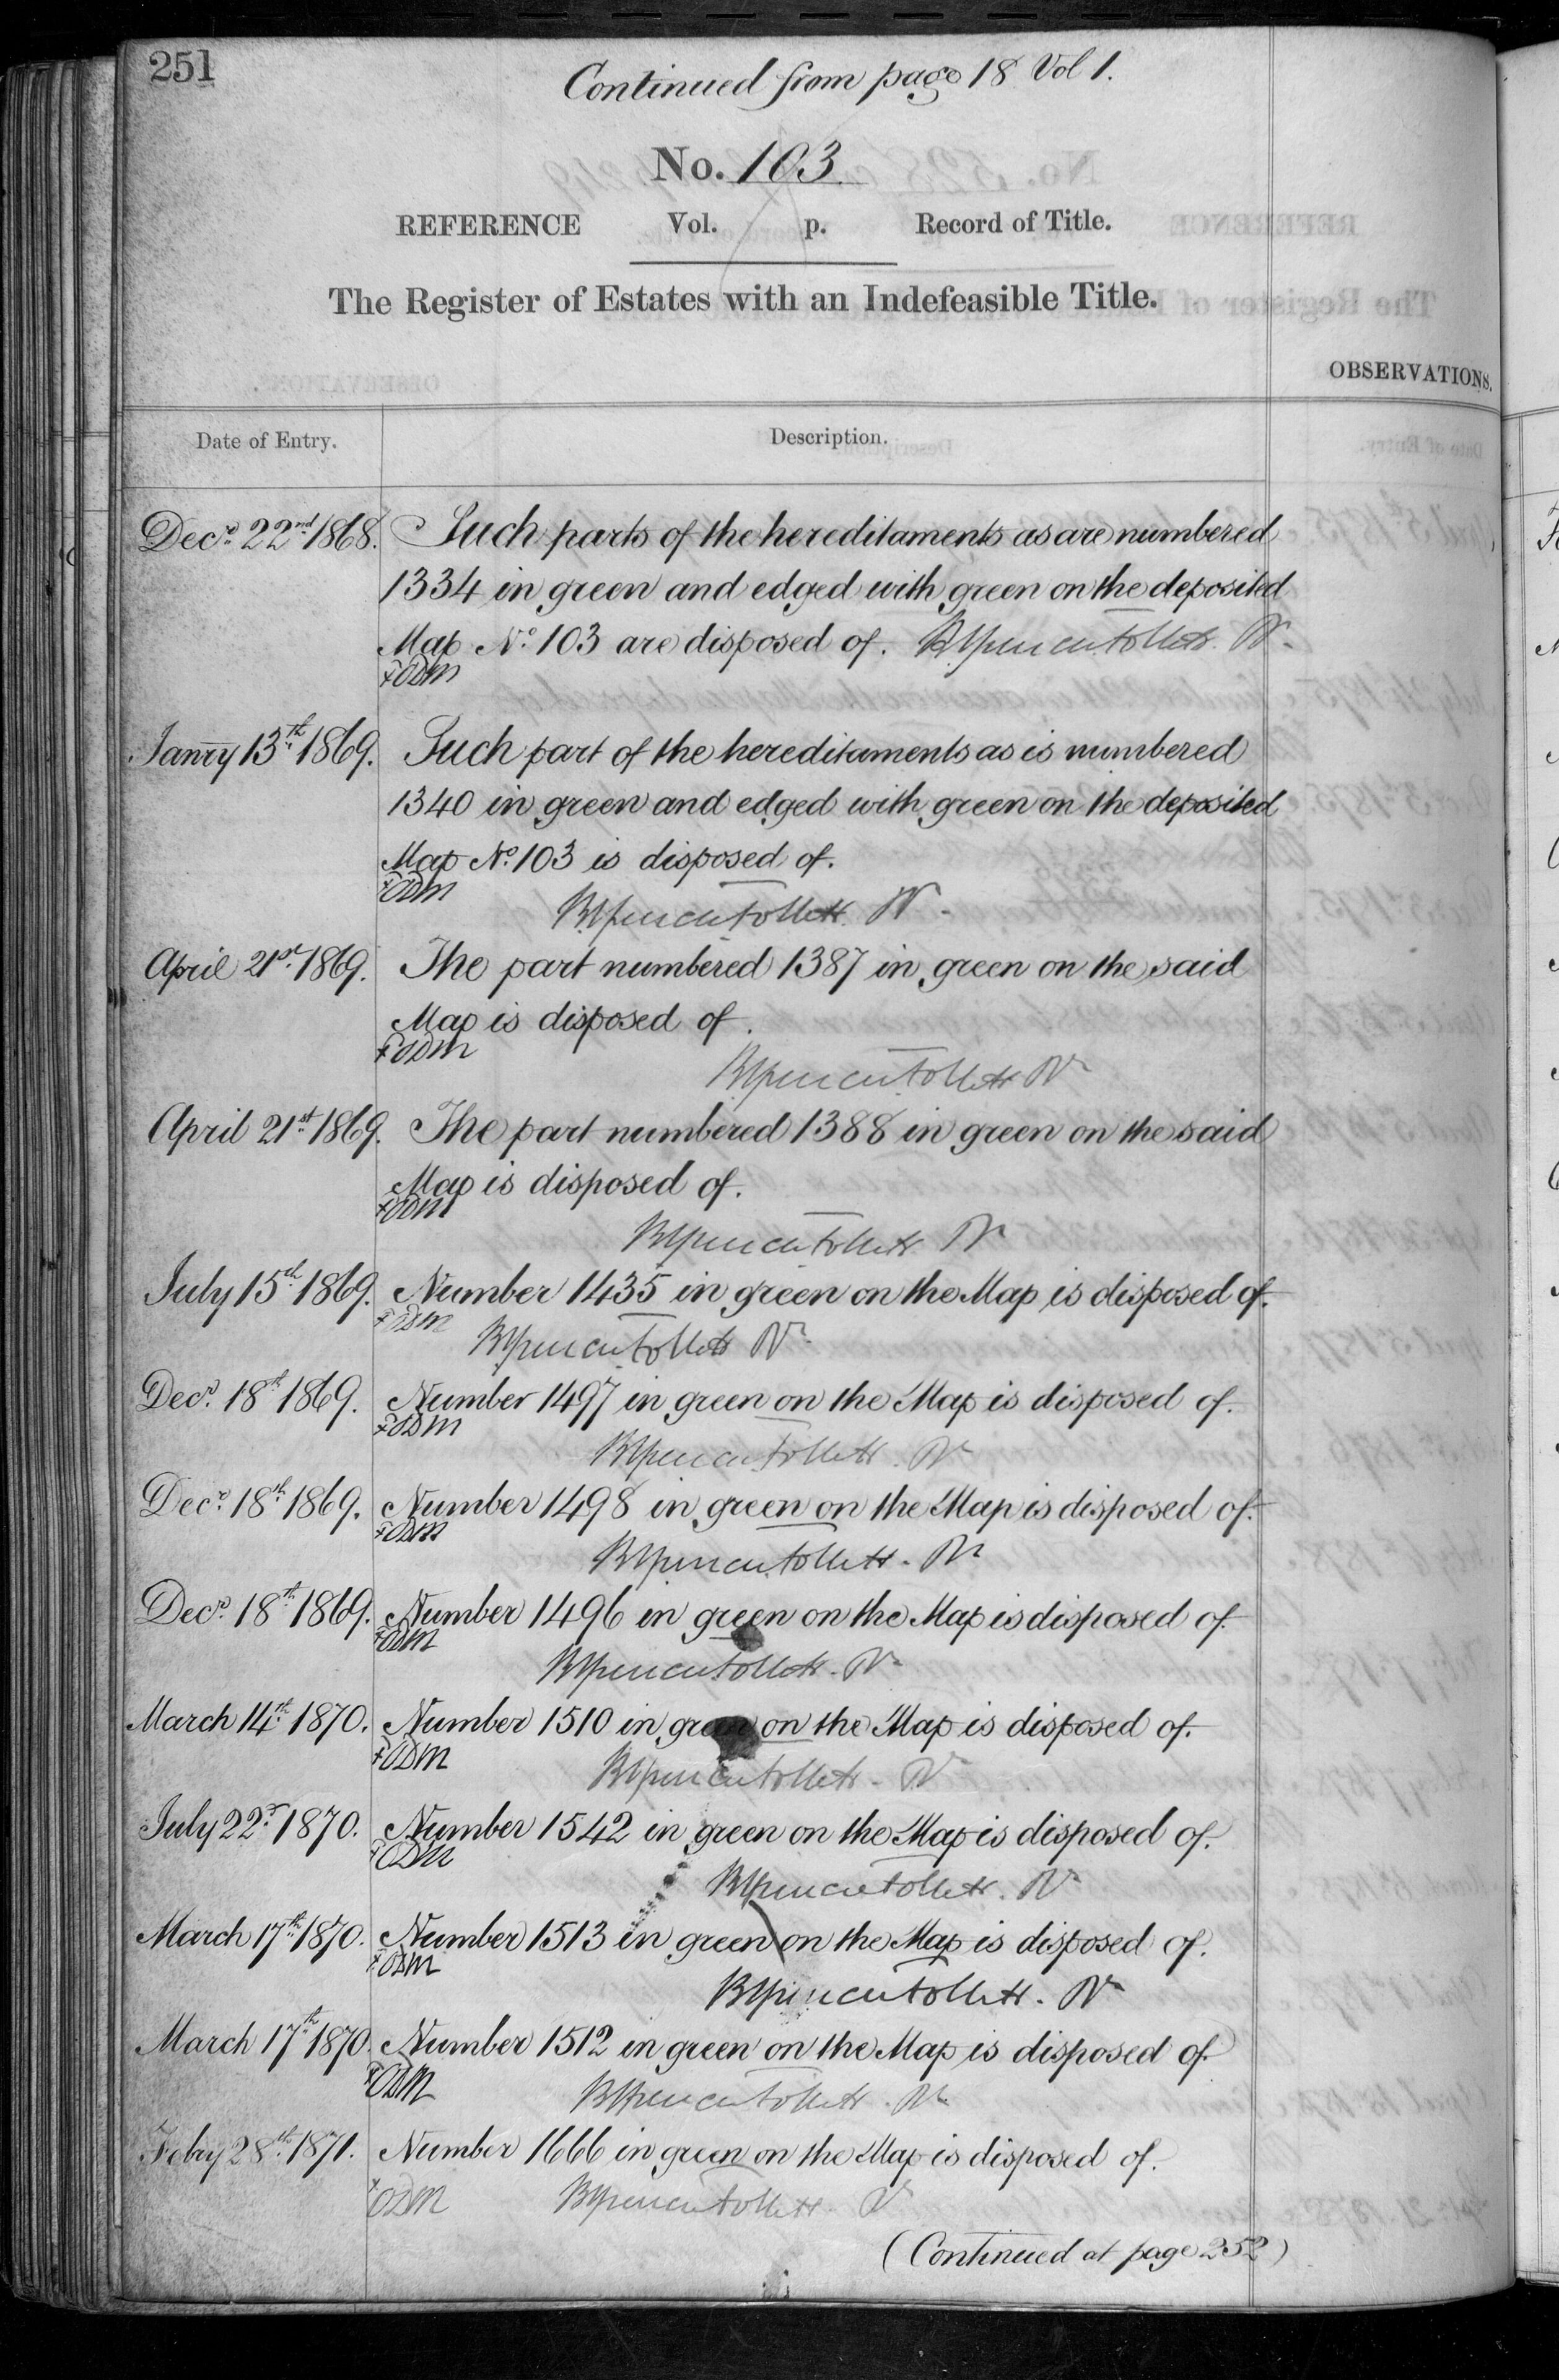 251
Continued from page 18 Vol 1.
No. 103.
REFERENCE Vol. p. Record of Title.
The Register of Estates with an Indefeasible Title.
OBSERVATIONS.
Date of Entry. Description.
Decr. 22nd 1868. Such parts of the hereditaments as are numbered
1334 in green and edged with green on the deposited
Map No. 103 are disposed of.
Janry 13th 1869. Such part of the hereditaments as is numbered
1340 in green and edged with green on the deposited
Map No. 103 is disposed of.
April 21st 1869. The part numbered 1387 in green on the said
Map is disposed of.
April 21st 1869. The part numbered 1388 in green on the said
Map is disposed of.
July 15th 1869. Number 1435 in green on the Map is disposed of.
Decr. 18th 1869. Number 1497 in green on the Map is disposed of.
Decr. 18th 1869. Number 1498 in green on the Map is disposed of.
Decr. 18th 1869. Number 1496 in green on the Map is disposed of.
March 14th 1870. Number 1510 in green on the Map is disposed of.
July 22d 1870. Number 1542 in green on the Map is disposed of.
March 17th 1870. Number 1513 in green on the Map is disposed of.
March 17th 1870. Number 1512 in green on the Map is disposed of.
Febry 28th 1871. Number 1666 in green on the Map is disposed of.
(Continued at page 252)